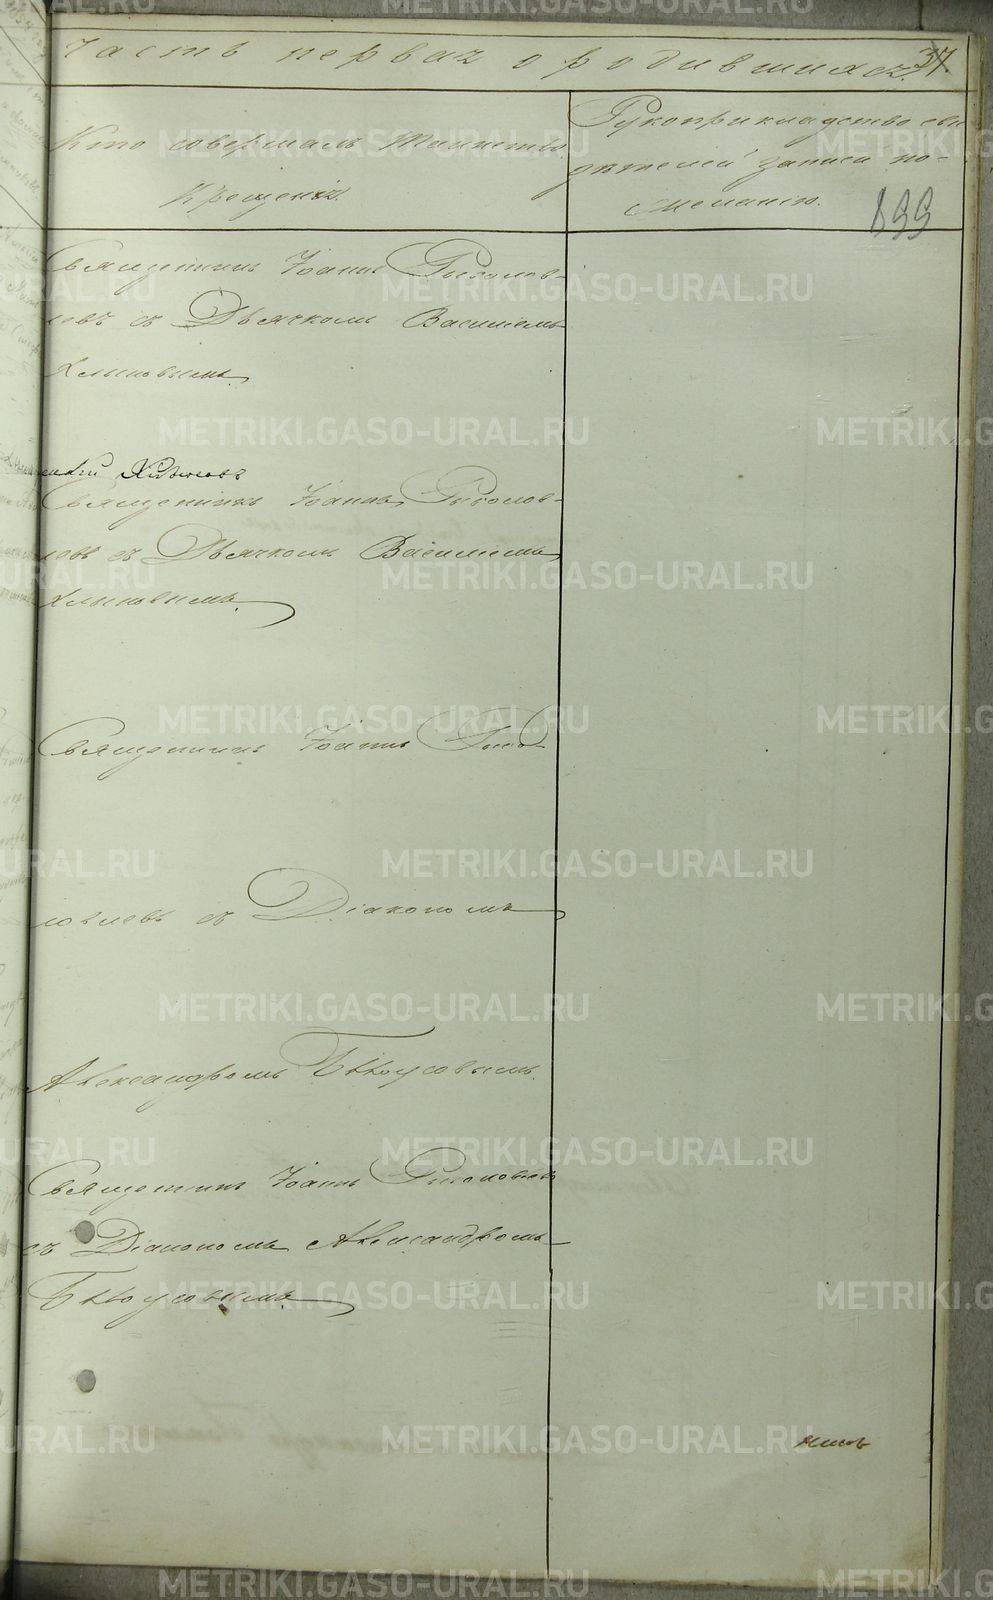 Часть первая о родившихся.
37.
Кто совершалъ Таинство
Крещенія.
Рукоприкладство сви
дѣтелей записи по
желанію.
899
Священникъ Іоаннъ
левъ съ Дьячкомъ Василіемъ
Хлыновымъ.
Священникъ Іоаннъ
левъ съ Дьячкомъ Василіемъ
Хлыновымъ.
Священникъ Іоаннъ
съ Діакономъ
Александромъ Бѣлоусовымъ.
Священникъ Іоаннъ
съ Діакономъ Александромъ
Бѣлоусовымъ.
METRIKI.GASO-URAL.RU